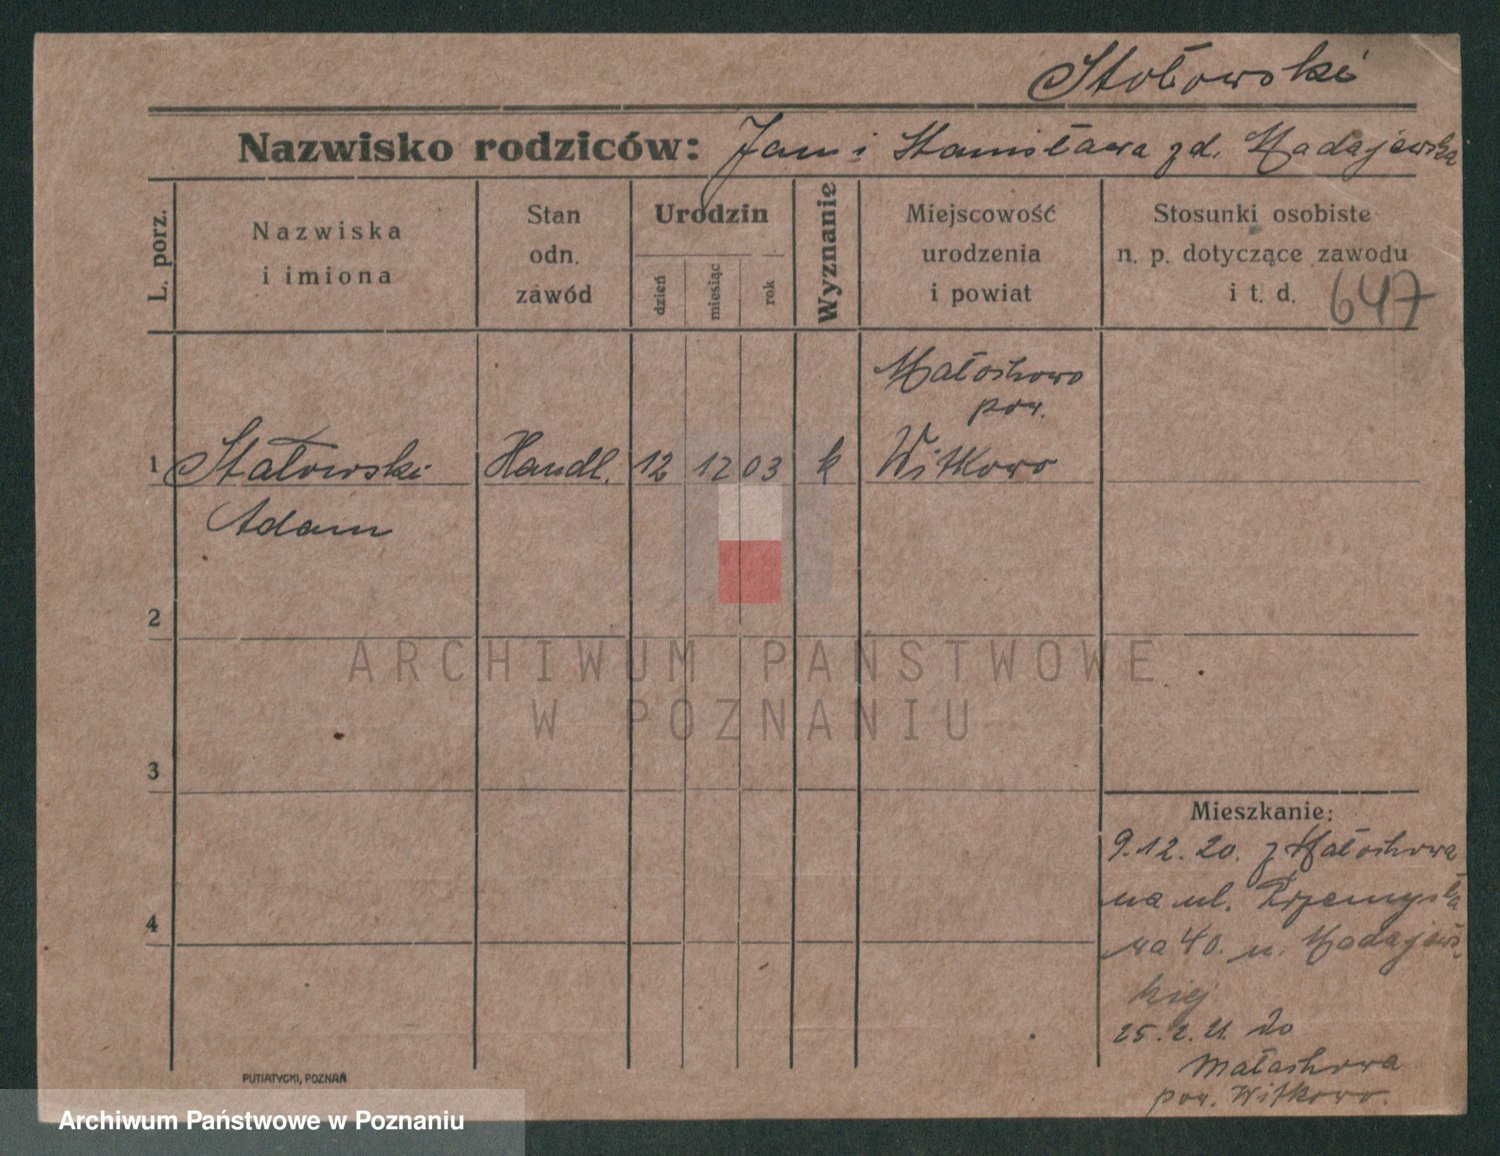 Stołowski
Nazwisko rodziców: Jan i Stanisława zd. Madajewska
L. porz.
Nazwiska
i imiona
Stan
odn.
zawód
Urodzin
dzień
miesiąc
rok
Wyznanie
Miejscowość
urodzenia
i powiat
Stosunki osobiste
n. p. dotyczące zawodu
i t. d.
647
Małachowo
pow.
1 Stałowski Handl. 12 12 03 k Witkowo
Adam
2
3
4
ARCHIWUM PAŃSTWOWE
W POZNANIU
Mieszkanie:
9.12.20. z Małachowa
na ul. Przemysła
wa 40. u. Madajews
kiej
25.2.21. do
Małachowa
pow. Witkowo.
PUTIATYCKI, POZNAŃ
Archiwum Państwowe w Poznaniu